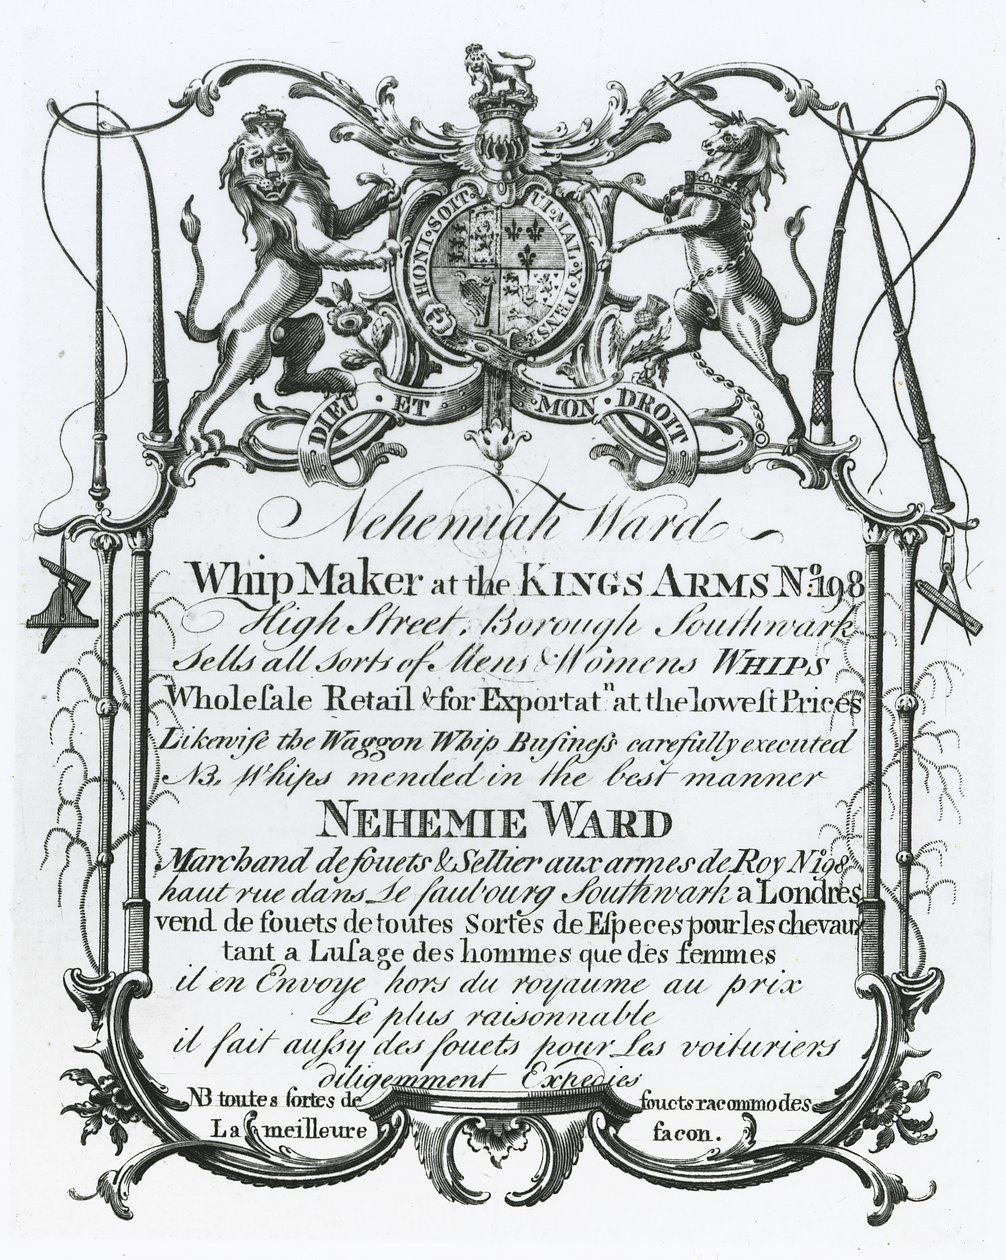 HONI·SOIT·QUI·MAL·Y·PENSE
DIEU · ET · MON · DROIT
Nehemiah Ward
Whip Maker at the KINGS ARMS No. 198
High Street, Borough Southwark
Sells all Sorts of Mens & Womens WHIPS
Wholeſale Retail & for Exportatn at the loweſt Prices
Likewiſe the Waggon Whip Buſineſs carefully executed
NB. Whips mended in the best manner
NEHEMIE WARD
Marchand de fouets & Sellier aux armes de Roy No. 198
haut rue dans Le faubourg Southwark a Londres
vend de fouets de toutes Sortes de Eſpeces pour les chevaux
tant a Luſage des hommes que des femmes
il en Envoye hors du royaume au prix
Le plus raisonnable
il fait auſsy des fouets pour Les voituriers
diligemment Expedies
NB toutes ſortes de fouets racommodes
La meilleure facon.